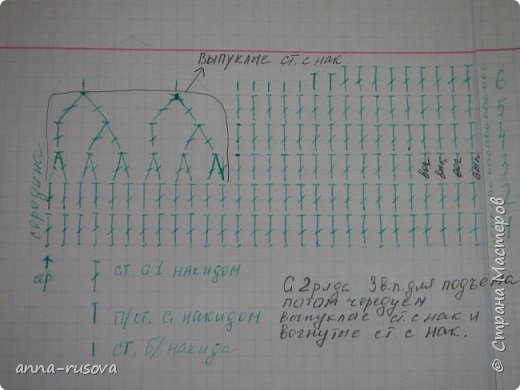 выпуклые ст. с нак
6
5
4
3
2
середина
вог вып вог
ст. с 1 накидом
п/ст. с накидом
ст. б/накида
С 2 ряда 3 в.п. для подъема
патом чередуем
выпуклые ст. с нак и
вогнутые ст. с нак.
anna-rusova
© Страна Мастеров